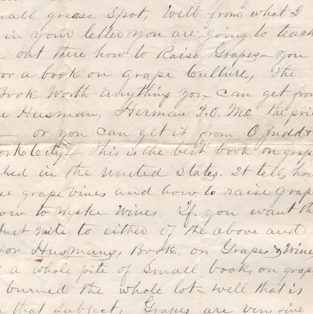 mall grease Spot, Well from what I
in your letter you are going to teach
out there how to Raise Grapes - you
or a book on Grape Culture, The
Book Worth anything you can get from
e Husman, Herman P.O. Mo the pri
or you can get it from O Judd &
York City. This is the best book on grape
shed in the United States. It tells how
se grape vines and how to raise Grape
ow to make Wines. If you want the
ust write to either of the above and
for Husmans, Book, on Grapes & Wine
a whole pile of Small book, on grap
burned the whole lot - well that is
n that Subject, Grapes are